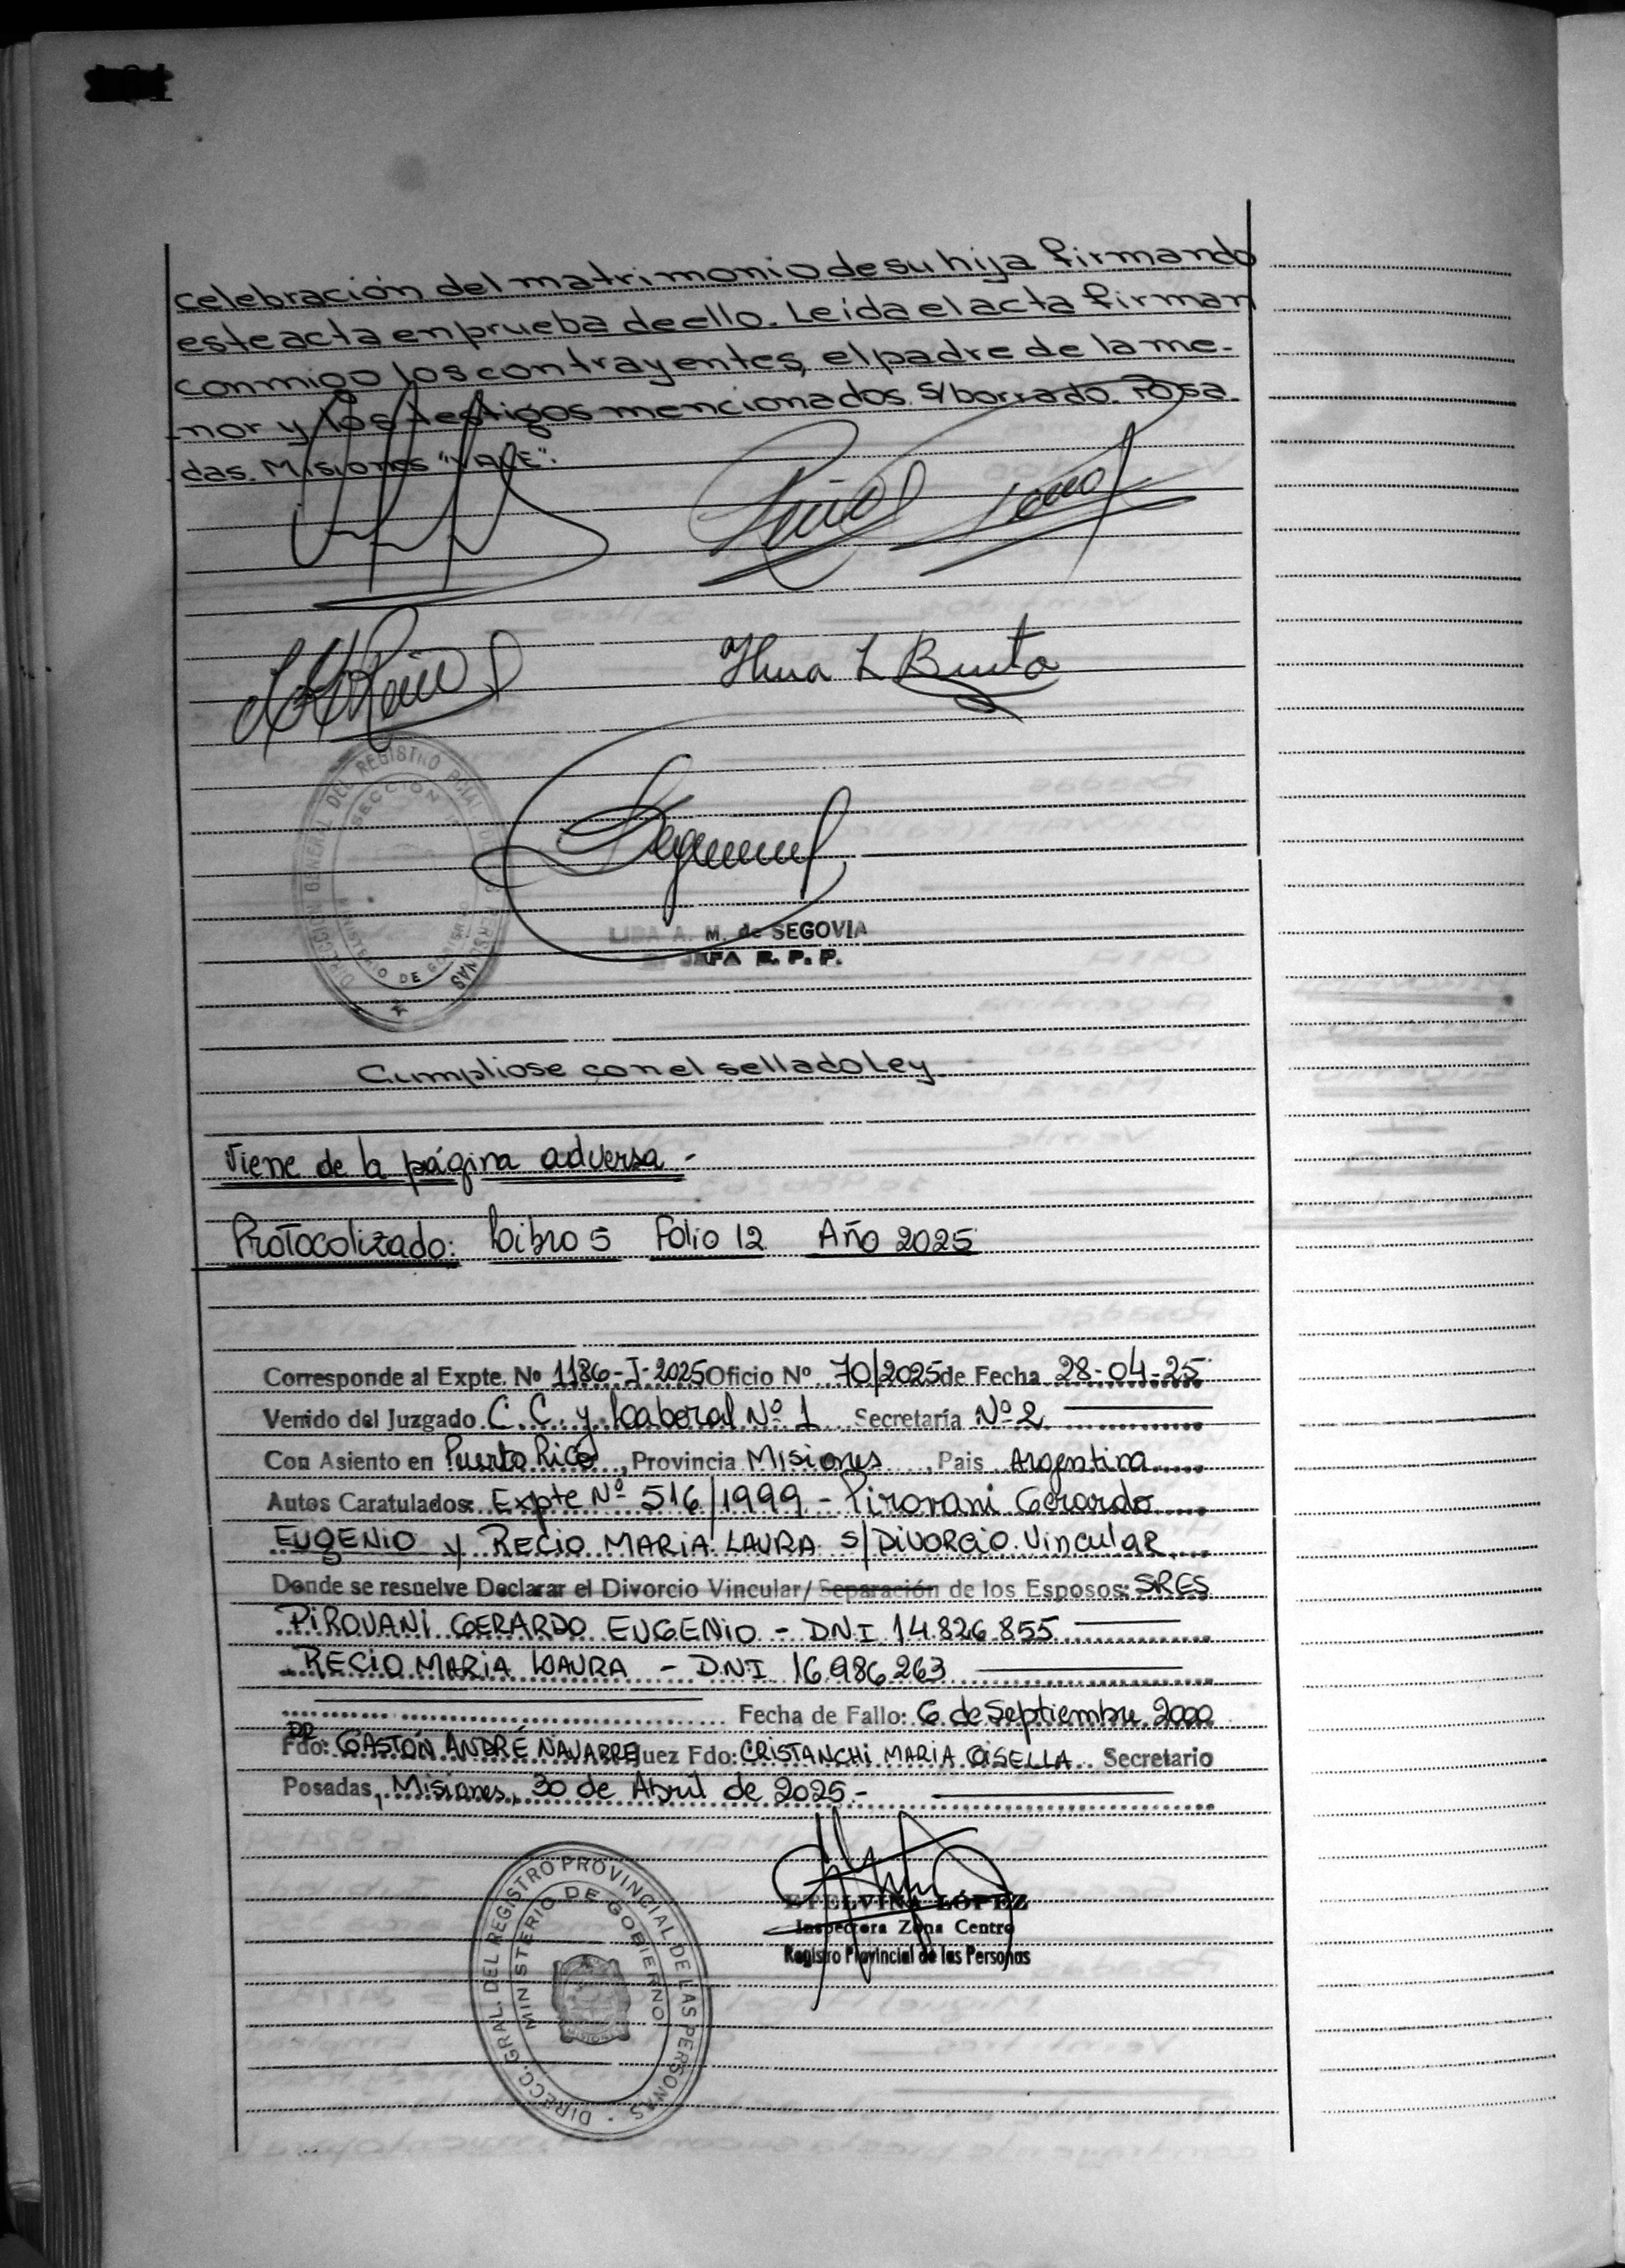 celebración del matrimonio de su hija firmando
este acta en prueba de ello. Leída el acta firman
conmigo los contrayentes, el padre de la me-
nor y los testigos mencionados. S/borrado. Posa
das. Misiones "VALE".
DIRECCION GENERAL DEL REGISTRO PCIAL DE LAS PERSONAS
SECCION
MINISTERIO DE GOBIERNO
LIDA A. M. de SEGOVIA
JEFA R. P. P.
Cumpliose con el sellado Ley
Viene de la página adversa -
Protocolizado: Libro 5 Folio 12 Año 2025
Corresponde al Expte. Nº 1186-I-2025 Oficio Nº 70/2025 de Fecha 28-04-25
Venido del Juzgado C.C. y Laboral Nº 1 Secretaría Nº 2
Con Asiento en Puerto Rico, Provincia Misiones, Pais Argentina
Autos Caratulados: Expte Nº 516/1999 - Pirovani Gerardo
EUGENIO y RECIO MARIA LAURA S/DIVORCIO Vincular
Donde se resuelve Declarar el Divorcio Vincular/Separación de los Esposos: SRES
PIROVANI GERARDO EUGENIO - DNI 14.826.855
RECIO MARIA LAURA - DNI 16.986.263
Fecha de Fallo: 6 de Septiembre 2000
DR
Fdo: GASTÓN ANDRÉ NAVARRE Juez Fdo: CRISTANCHI MARIA GISELLA Secretario
Posadas, Misiones, 30 de Abril de 2025.-
ETELVINA LÓPEZ
Inspectora Zona Centro
Registro Provincial de las Personas
DIRECC. GRAL. DEL REGISTRO PROVINCIAL DE LAS PERSONAS
MINISTERIO DE GOBIERNO
MISIONES